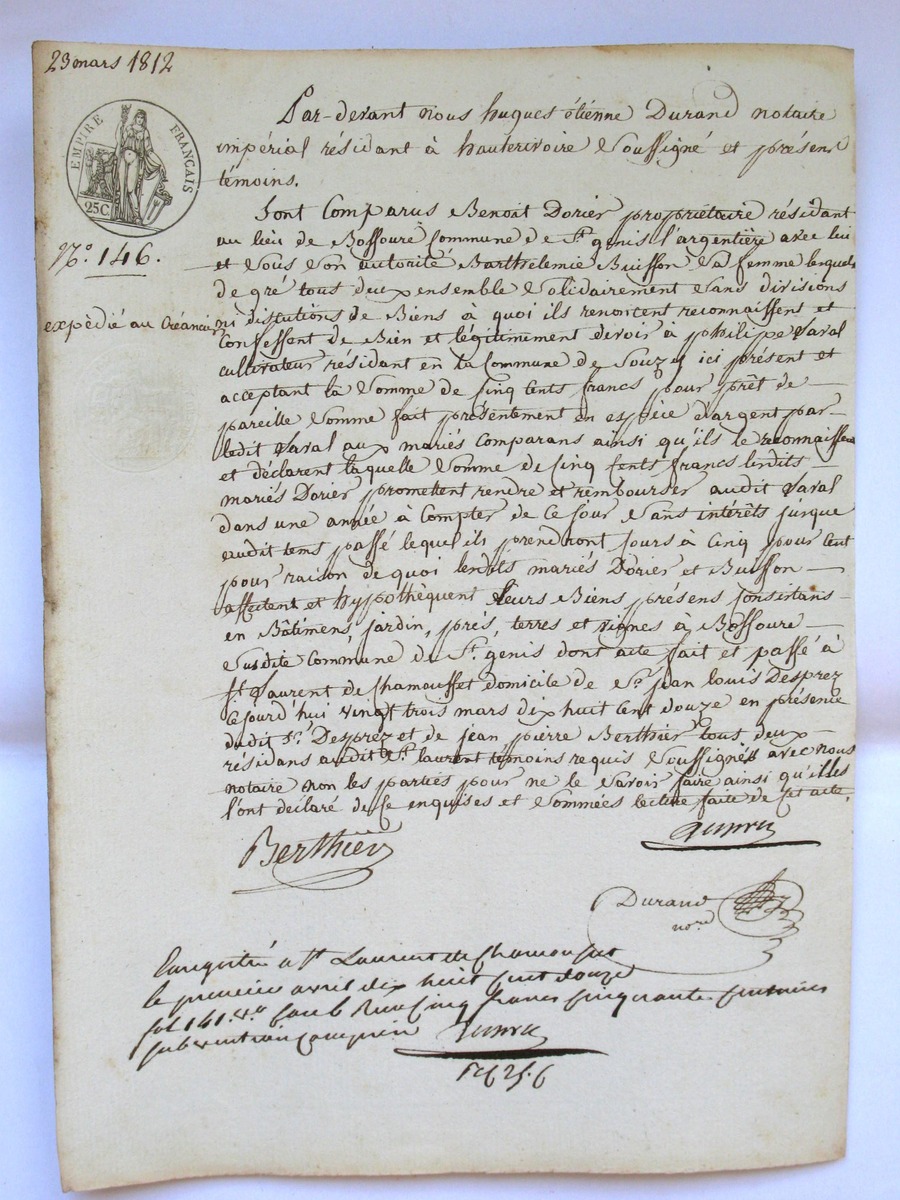 23 mars 1812
EMPIRE FRANÇAIS
25C.
N.° 146.
expédié au Créancier
Par-devant nous hugues étienne Durand notaire
impérial résidant à hauterivoire Soussigné et présens
témoins.
Sont Comparus Benoit Dorier propriétaire résidant
au lieu de Bossoure Commune de St. genis l'argentière avec lui
et Sous Son autorité Barthelemie Buisson Sa femme lesquels
de gré tous deux ensemble Solidairement Sans divisions
ni distutions de Biens à quoi ils renontent reconnaissent et
Confessent de Bien et légitimement devoir à philipe Varal
cultivateur résidant en la Commune de Souzy ici présent et
acceptant la Somme de Cinq Cents francs pour prêt de
pareille Somme fait présentement en espèce d'argent par
ledit Varal aux mariés Comparans ainsi qu'ils le reconnaissent
et déclarent laquelle Somme de Cinq Cents francs lesdits
mariés Dorier promettent rendre et rembourser audit Varal
dans une année à Compter de Ce Jour Sans intérêts jusque
audit tems passé lequel ils prendront Cours à Cinq pour Cent
pour raison de quoi lesdits mariés Dorier et Buisson
affectent et hypothèquent leurs Biens présens Consistans
en Bâtimens, jardin, prés, terres et vignes à Bossoure
Susdite Commune de St. genis dont acte fait et passé à
St. Laurent de Chamousset domicile de Sr. jean Louis Desprez
Cejourd'hui vingt trois mars dix huit Cent douze en présence
dudit Sr. Desprez et de jean pierre Berthier tous deux
résidans audit St. laurent témoins requis Soussignés avec nous
notaire non les parties pour ne le Savoir faire ainsi qu'illes
l'ont déclaré de Ce enquises et Sommées lecture faite de Cet acte.
Berthier
Durand
no.re
Enregistré a St Laurent de Chamousset
le premier avril dix huit Cent douze
fol 141 vo Cinq francs Cinquante Centimes
Subvention Comprise